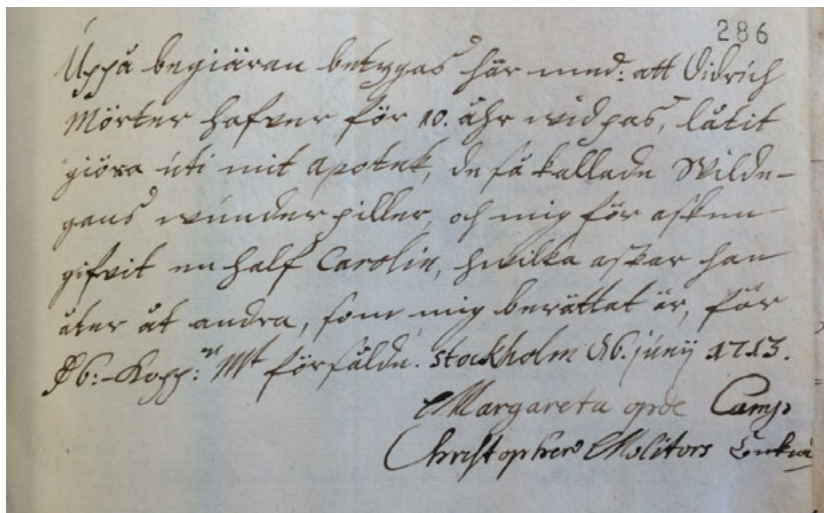 286
Uppå begiäran betygas här med: att Didrich
Mörter hafver för 10. åhr widpas, låtit
giöra uti mit apotek, de så kallade Wilde-
gans wunder piller, och mig för asken
gifvit en half Carolin, hwilka askar han
åter åt andra, som mig berättat är, för
6:- Kopp:r Mt försåldt. Stockholm d 6. junij 1713.
Margareta opde Camp
Christophers Molitors Enkia